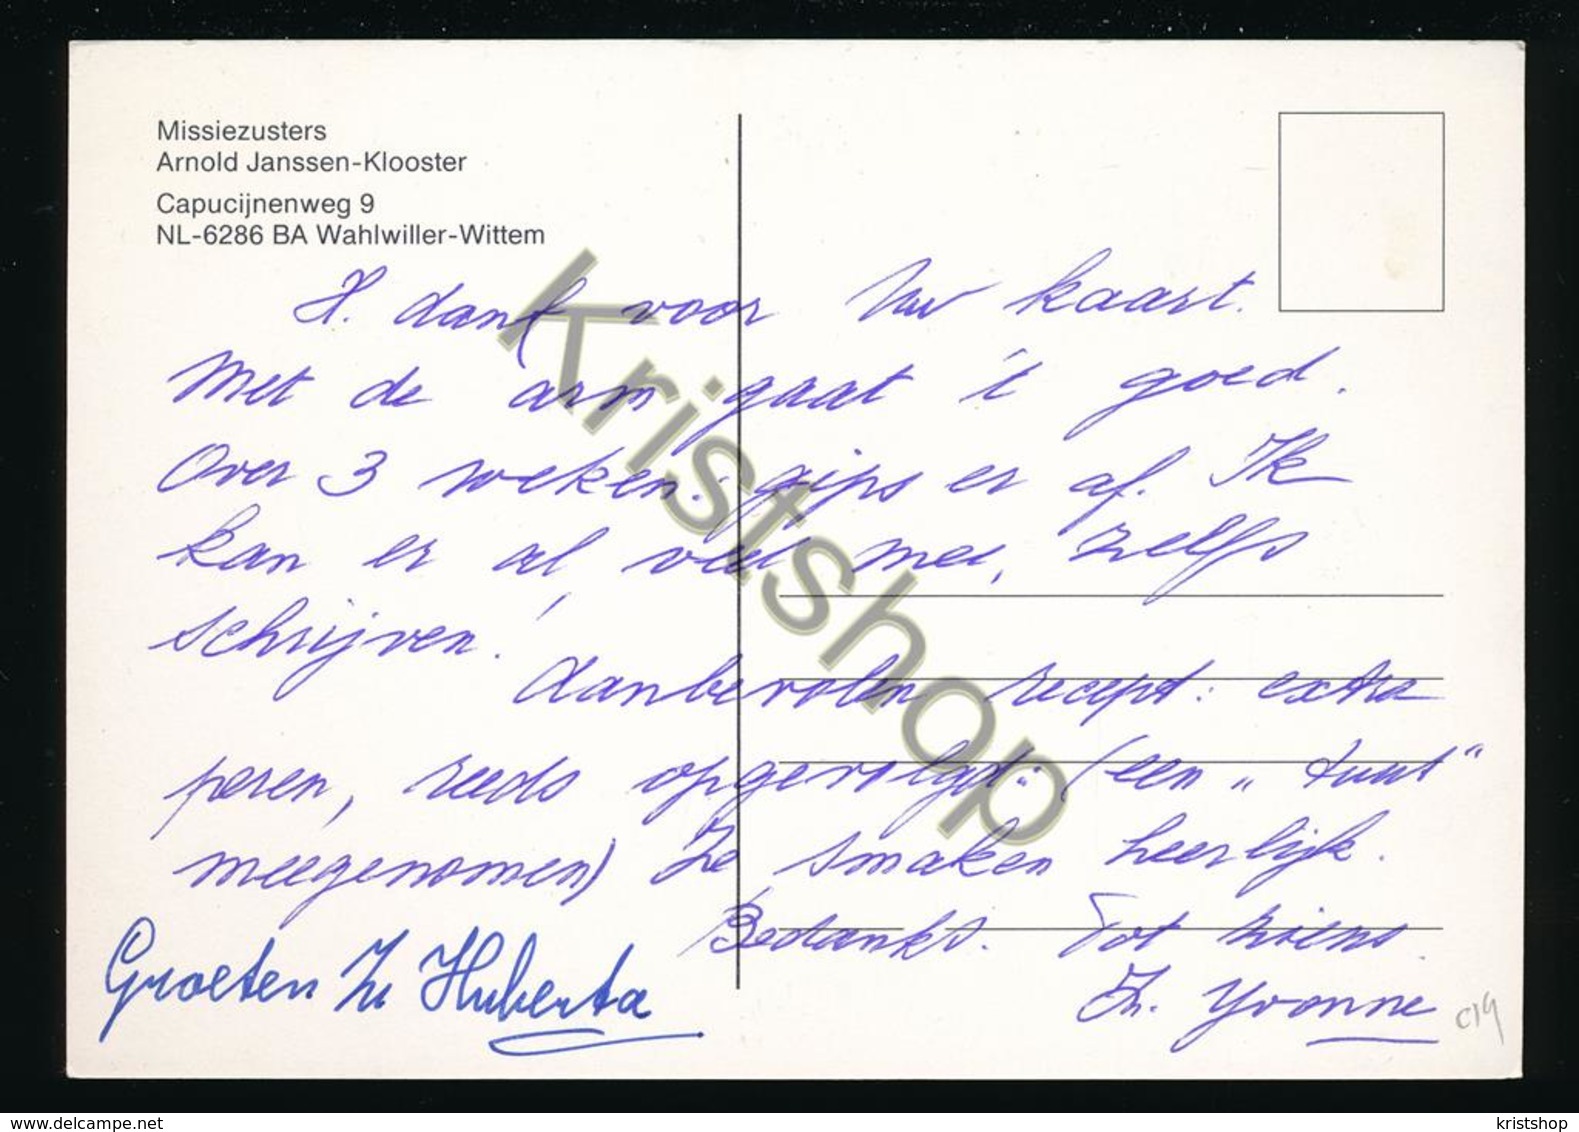 Missiezusters
Arnold Janssen-Klooster
Capucijnenweg 9
NL-6286 BA Wahlwiller-Wittem
H. dank voor Uw kaart.
Met de arm gaat 't goed.
Over 3 weken: gips er af. Ik
kan er al veel mee, zelfs
schrijven!
Aanbevolen recept: extra
peren, reeds opgevolgd: (een „tuut"
meegenomen) Ze smaken heerlijk.
Bedankt. Tot ziens.
Zr. Yvonne
Groeten Zr Huberta
C14
Kristshop
www.delcampe.net
kristshop